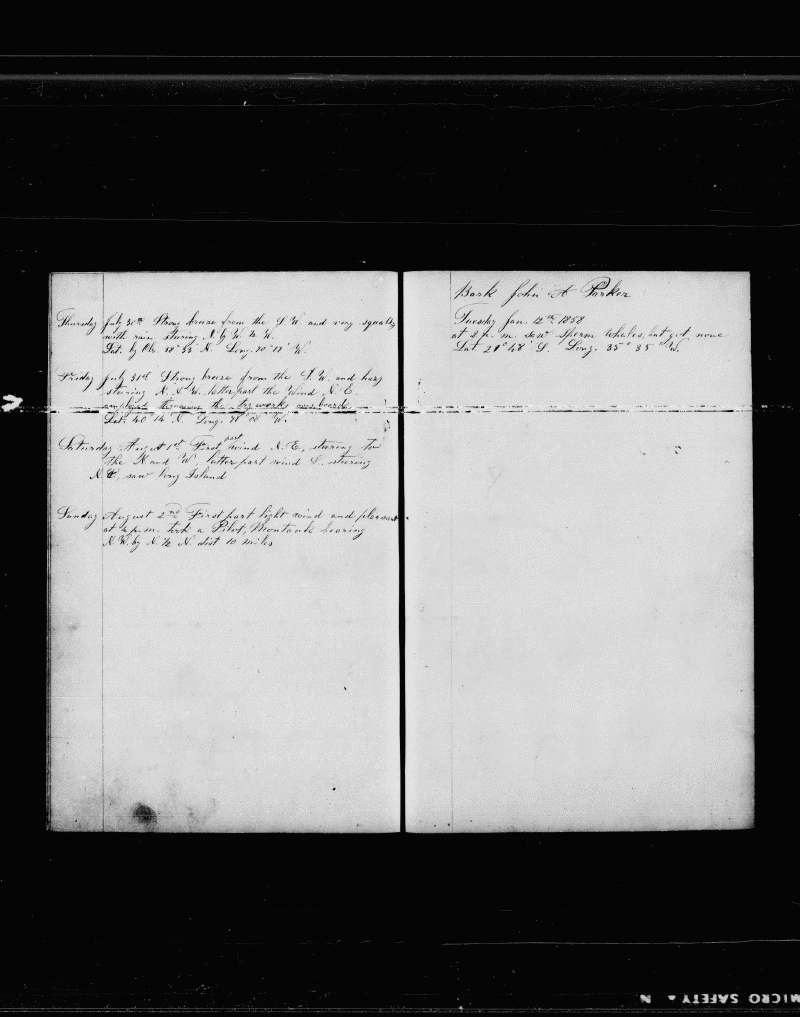 Thursday July 30th Strong breeze from the S. W. and very squally
with rain stearing N. by W. ½ W.
Lat. by Obs. 38° 33' N. Long. 70° 17' W.
Friday July 31st Strong breeze from the S. W. and hazy
stearing N. N. W. latter part the Wind N. E.
employed throwing the tryworks overboard
Lat. 40° 14' N. Long. 71° 08' W.
Saturday August 1st First part wind N. E., stearing to
the N and W. latter part wind S. stearing
N. E, saw long Island
Sunday August 2nd First part light wind and pleasant
at 4 p.m. took a Pilot, Montauk bearing
N. W. by N. ½ N. dist 10 miles
Bark John A Parker
Tuesday Jan. 12th 1858
at 2 p. m. saw Sperm Whales, but got none
Lat 21° 48' S. Long. 35° 35' W.
MICRO SAFETY ▲ N